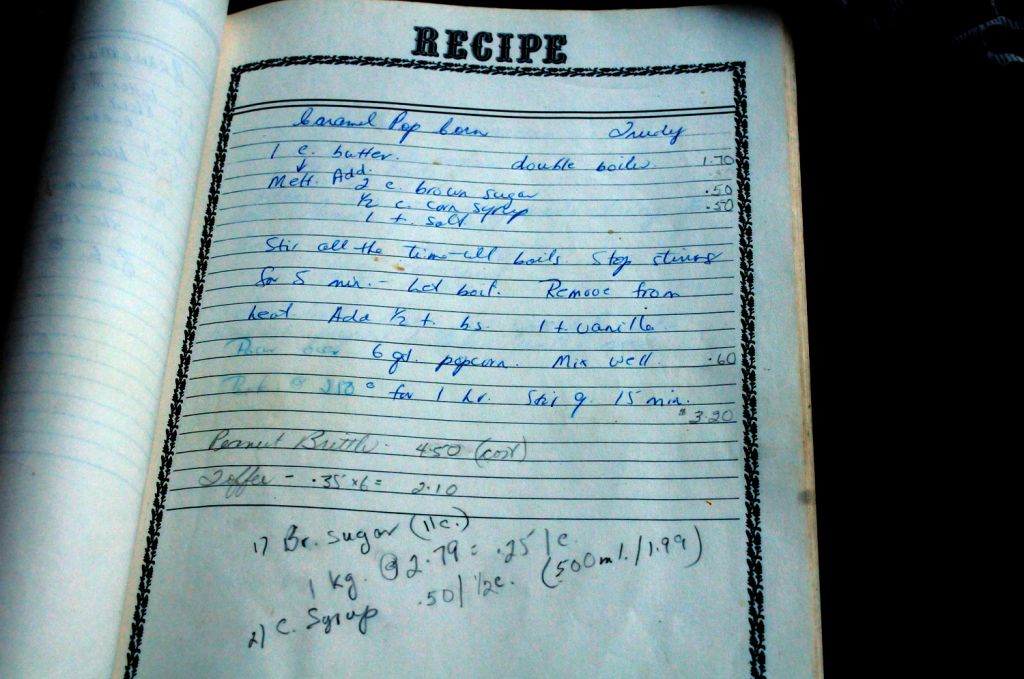 RECIPE
Caramel Pop Corn Trudy
1 c. butter. double boiler. 1.70
Melt. Add.
2 c. brown sugar .50
1/2 c. corn syrup .50
1 t. salt
Stir all the time till boils Stop stirring
for 5 min. - Let boil. Remove from
heat Add 1/2 t. bs. 1 t. vanilla
Pour over 6 qt. popcorn. Mix well .60
Bake @ 250° for 1 hr. Stir q. 15 min.
$3.20
Peanut Brittle - 4.50 (cost)
Toffee - .35 x 6 = 2.10
1) Br. sugar (11c.)
1 kg. @ 2.79 = .25 / c.
2) C. Syrup .50 / 1/2 c. (500 ml. / 1.99)